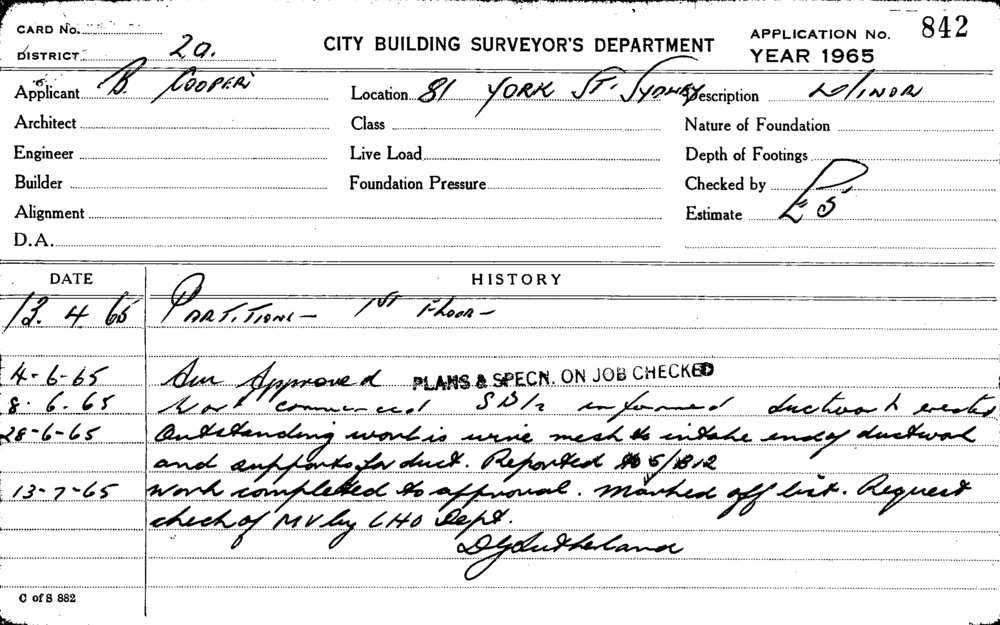 CARD No.
DISTRICT 2a.
CITY BUILDING SURVEYOR'S DEPARTMENT
APPLICATION No. 842
YEAR 1965
Applicant B. COOPER
Location 81 YORK ST. SYDNEY
Description MINOR
Architect
Class
Nature of Foundation
Engineer
Live Load
Depth of Footings
Builder
Foundation Pressure
Checked by
Alignment
Estimate £5
D.A.
DATE
HISTORY
13. 4. 65 PARTITIONS - 1ST FLOOR -
4-6-65 Approved PLANS & SPECN. ON JOB CHECKED
8. 6. 65 Work commenced informed ductwork erected
28-6-65 Outstanding work is wire mesh to intake end of ductwork
and supports for duct. Reported to
13-7-65 Work completed to approval. Marked off list. Request
check of MV by CHO Dept.
D G Sutherland
C of S 882